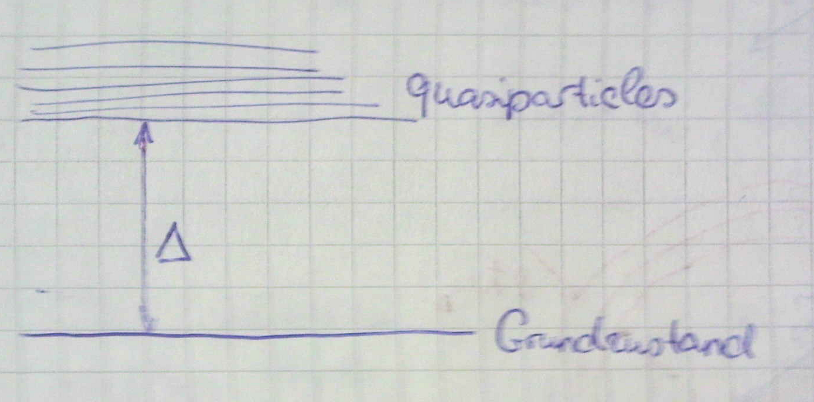 quasiparticles
Δ
Grundzustand